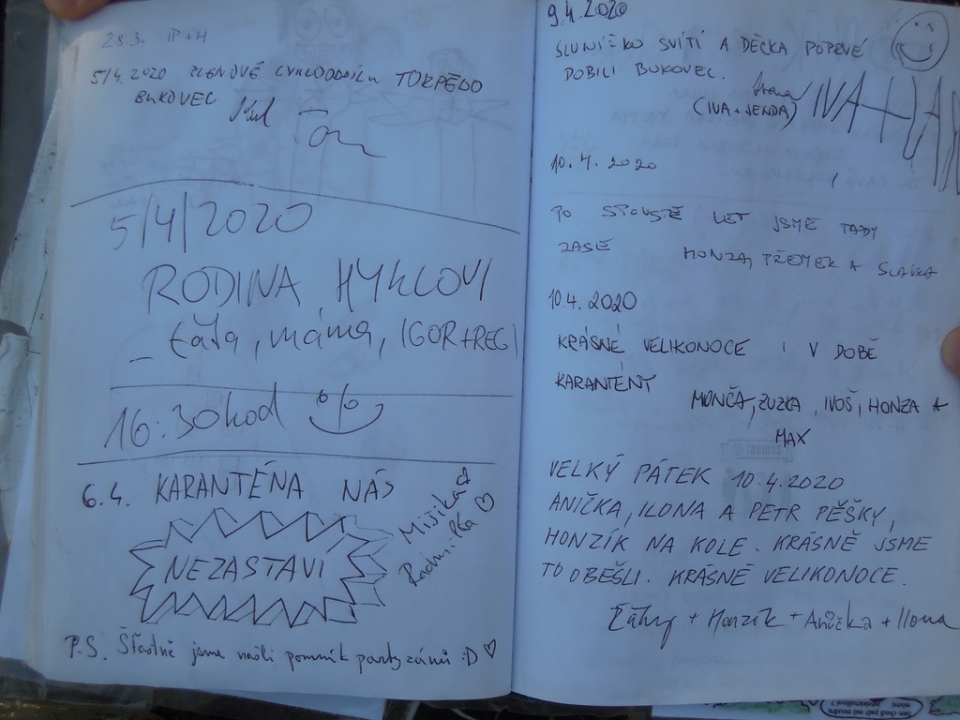 28.3. IP+H
5/4.2020 ČLENOVÉ CYKLOODDÍLU TORPÉDO
BUKOVEC
5/4/2020
RODINA HYKLOVI
– táta, máma, IGOR+REGI
16:30hod
6.4. KARANTÉNA NÁS
NEZASTAVÍ
Mišika
P.S. Šťastně jsme našli pomník partyzánů :D ♡
9.4.2020
SLUNÍČKO SVÍTÍ A DĚCKA POPRVÉ
DOBILI BUKOVEC.
(IVA+JENDA) IVA+JAN
10.4.2020
PO SPOUSTĚ LET JSME TADY
ZASE HONZA, PŘEMEK A SLÁVKA
10 4. 2020
KRÁSNÉ VELIKONOCE I V DOBĚ
KARANTÉNY
MONČA, ZUZKA, IVOŠ, HONZA A
MAX
VELKÝ PÁTEK 10.4.2020
ANIČKA, ILONA A PETR PĚŠKY,
HONZÍK NA KOLE. KRÁSNĚ JSME
TO OBEŠLI. KRÁSNÉ VELIKONOCE.
+ Honzík + Anička + Ilona